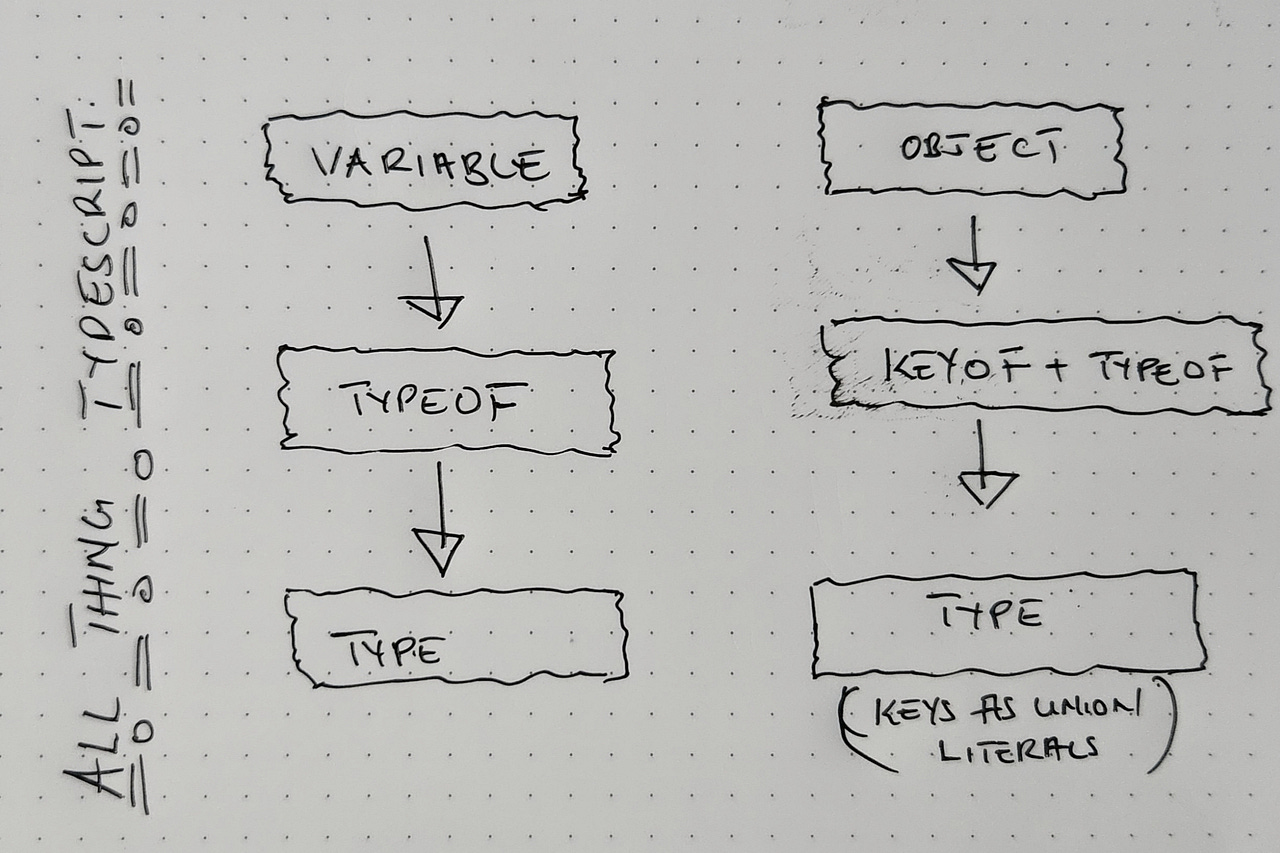 ALL THING TYPESCRIPT
VARIABLE
TYPEOF
TYPE
OBJECT
KEYOF + TYPEOF
TYPE
(KEYS AS UNION
LITERALS)